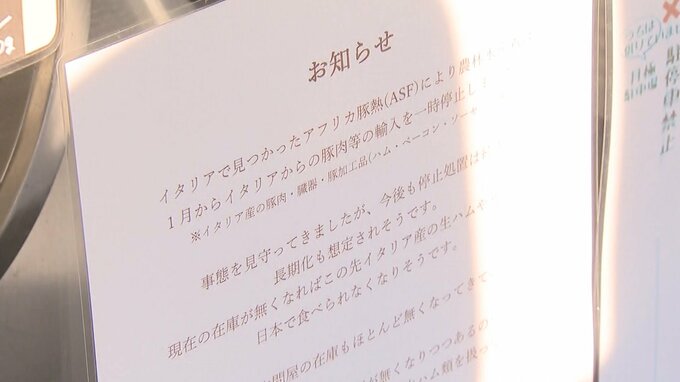 お知らせ
イタリアで見つかったアフリカ豚熱(ASF)により農林水
1月からイタリアからの豚肉等の輸入を一時停止し
※イタリア産の豚肉・臓器・豚加工品(ハム・ベーコン・ソーセ
事態を見守ってきましたが、今後も停止処置は
長期化も想定されそうです。
現在の在庫が無くなればこの先イタリア産の生ハムや
日本で食べられなくなりそうです。
問屋の在庫もほとんど無くなってきて
が無くなりつつあるの
ハム類を扱っ
駐停車禁止